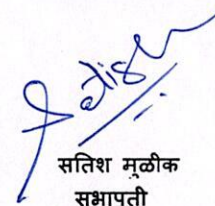 सतिश मुळीक
सभापती